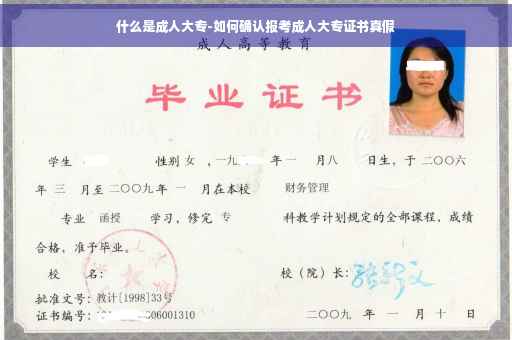 什么是成人大专-如何确认报考成人大专证书真假
成人高等教育
毕业证书
学生 性别 女 ,一九 年 一 月 八 日生,于 二〇〇六
年 三 月至 二〇〇九 年 一 月在本校 财务管理
专业 函授 学习,修完 专 科教学计划规定的全部课程,成绩
合格,准予毕业。
校 名: 校(院)长:
批准文号:教计[1998]33号
证书编号: 06001310 二〇〇九 年 一 月 十 日